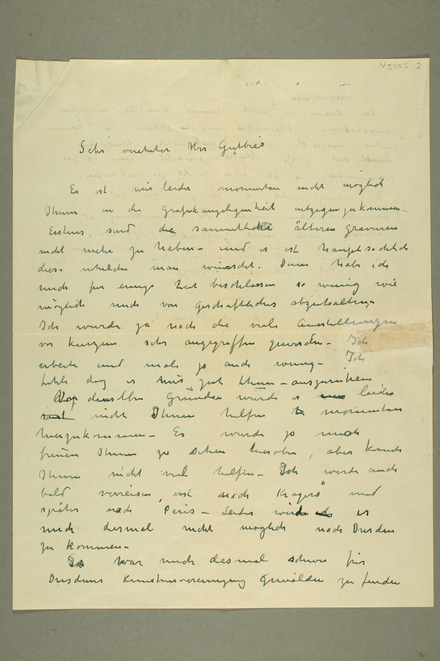 N3455-2
Sehr verehrter Herr Gutbier
Es ist mir leider momentan nicht möglich
Ihnen in die Grafikangelegenheit entgegen zu kommen.
Erstens sind die sammtliche älteren gravuren
nicht mehr zu haben – und es ist hauptsächlich
diese welche man wünscht. Dann habe ich
mich für einige Zeit beschlossen so wenig wie
möglich mich von Geschäftliches abzuhalten –
Ich wurde ja nach die viele Ausstellungen
vor kurzem sehr angegriffen geworden – Ich
arbeite und male ja auch wenig – Ich
es gut – auszuruhen
denselben Gründen würde es leider
nicht Ihnen helfen momentan
herzukommen – Es würde ja mich
freuen Ihnen zu sehen, aber
Ihnen nicht viel helfen – Ich werde auch
bald verreisen, erst nach Kragerö und
später nach Paris – Leider wird es
mich diesmal nicht möglich nach Dresden
zu kommen –
Es war mich diesmal schwer für
Dresdner Kunstvereinigung Gemälden zu finden